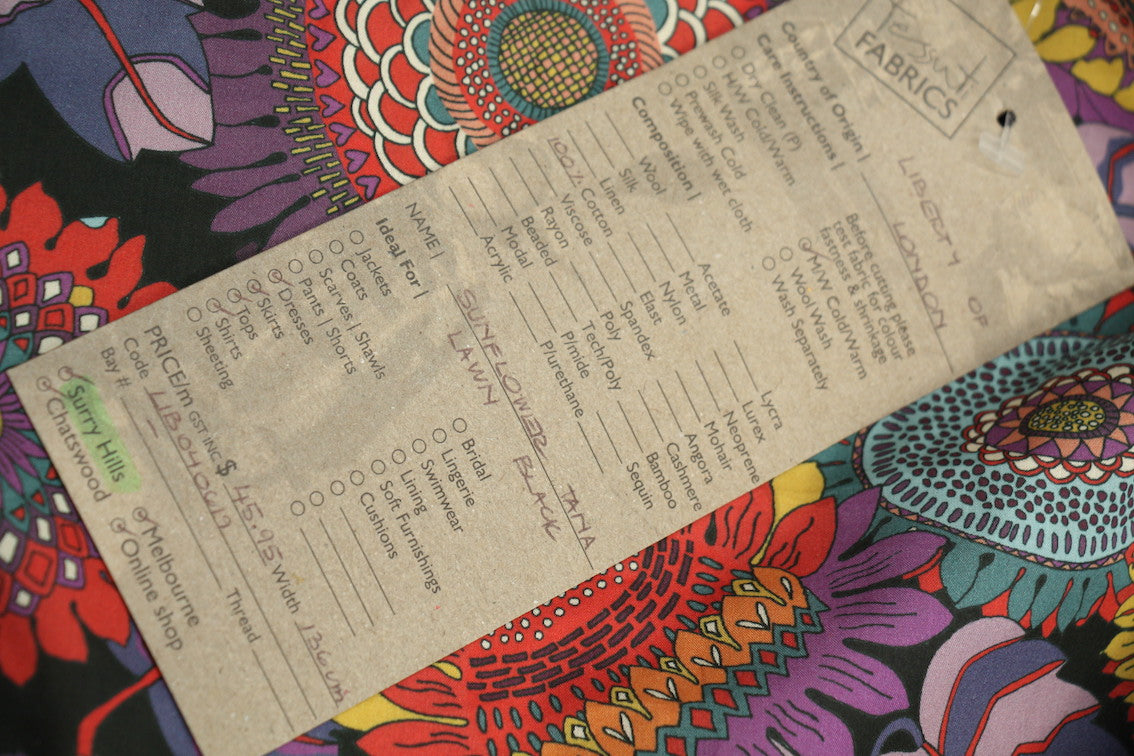 Tessuti
FABRICS
Country of Origin | LIBERTY OF LONDON
Care Instructions |
Dry Clean (P)
MW Cold/Warm
Silk Wash
Prewash Cold
Wipe with wet cloth
Before cutting please
test fabric for colour
fastness & shrinkage
M/W Cold/Warm
Wool Wash
Wash Separately
Composition |
Wool
Silk
Linen
100% Cotton
Viscose
Rayon
Beaded
Modal
Acrylic
Acetate
Metal
Nylon
Elast
Spandex
Poly
Tech/Poly
P/mide
P/urethane
Lycra
Lurex
Neoprene
Mohair
Angora
Cashmere
Bamboo
Sequin
NAME | SUNFLOWER TANA
LAWN BLACK
Ideal For |
Jackets
Coats
Scarves | Shawls
Pants | Shorts
Dresses
Skirts
Tops
Shirts
Sheeting
Bridal
Lingerie
Swimwear
Lining
Soft Furnishings
Cushions
PRICE/m GST INC $ 45.95 Width 136cm
Code LIB0406417
Bay # Thread
Surry Hills
Chatswood
Melbourne
Online shop